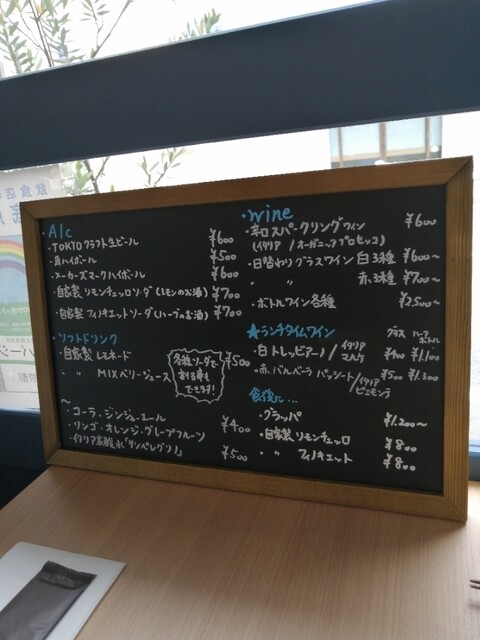 Alc
・TOKYOクラフト生ビール ¥600
・角ハイボール ¥500
・メーカーズマークハイボール ¥600
・自家製 リモンチェッロソーダ(レモンのお酒) ¥700
・自家製 フィノキエットソーダ(ハーブのお酒) ¥700
・ソフトドリンク
・自家製 レモネード ¥500
・ 〃 MIXベリージュース
各種ソーダで
割る事も
できます!
〜
・コーラ・ジンジャーエール
・リンゴ・オレンジ・グレープフルーツ ¥400
・イタリア炭酸水「サンペレグリノ」 ¥500
・wine
・辛口スパークリングワイン ¥600
(イタリア/オーガニックプロセッコ)
・日替わりグラスワイン 白3種 ¥600〜
〃 赤3種 ¥700〜
・ボトルワイン各種 ¥2,500〜
★ランチタイムワイン グラス ハーフボトル
・白 トレッビアーノ/イタリア マルケ ¥400 ¥1,100
・赤 バルベーラ パッシート/イタリア ピエモンテ ¥500 ¥1,300
食後に…
・グラッパ ¥1,200〜
・自家製 リモンチェッロ ¥800
・ 〃 フィノキエット ¥800
飲食店